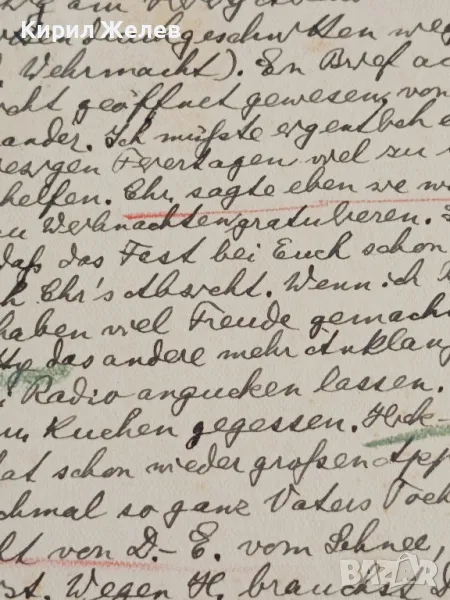 Кирил Желев
durchgeschnitten weg
Wehrmacht). En Brief
cht geöffnet gewesen, von
ander. Ich müßte eigentlich
Feiertagen viel zu
helfen. Ehr. sagte eben
Weihnachten gratulieren.
daß das Fest bei Euch schon
Ehr's Absicht. Wenn ich
haben viel Freude gemacht
das andere mehr Anklang
Radio angucken lassen.
Kuchen gegessen. Heck-
at schon wieder großen App
chmal so ganz Vaters Toch
lt von D.-E. vom Schnee,
rst. Wegen H. brauchst D
BAZAR
bg